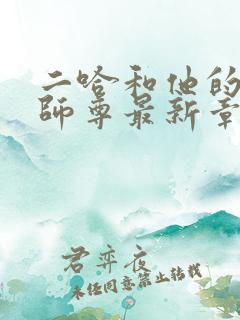 二哈和他的
師尊最新章
君弈夜
未任同意禁止转载